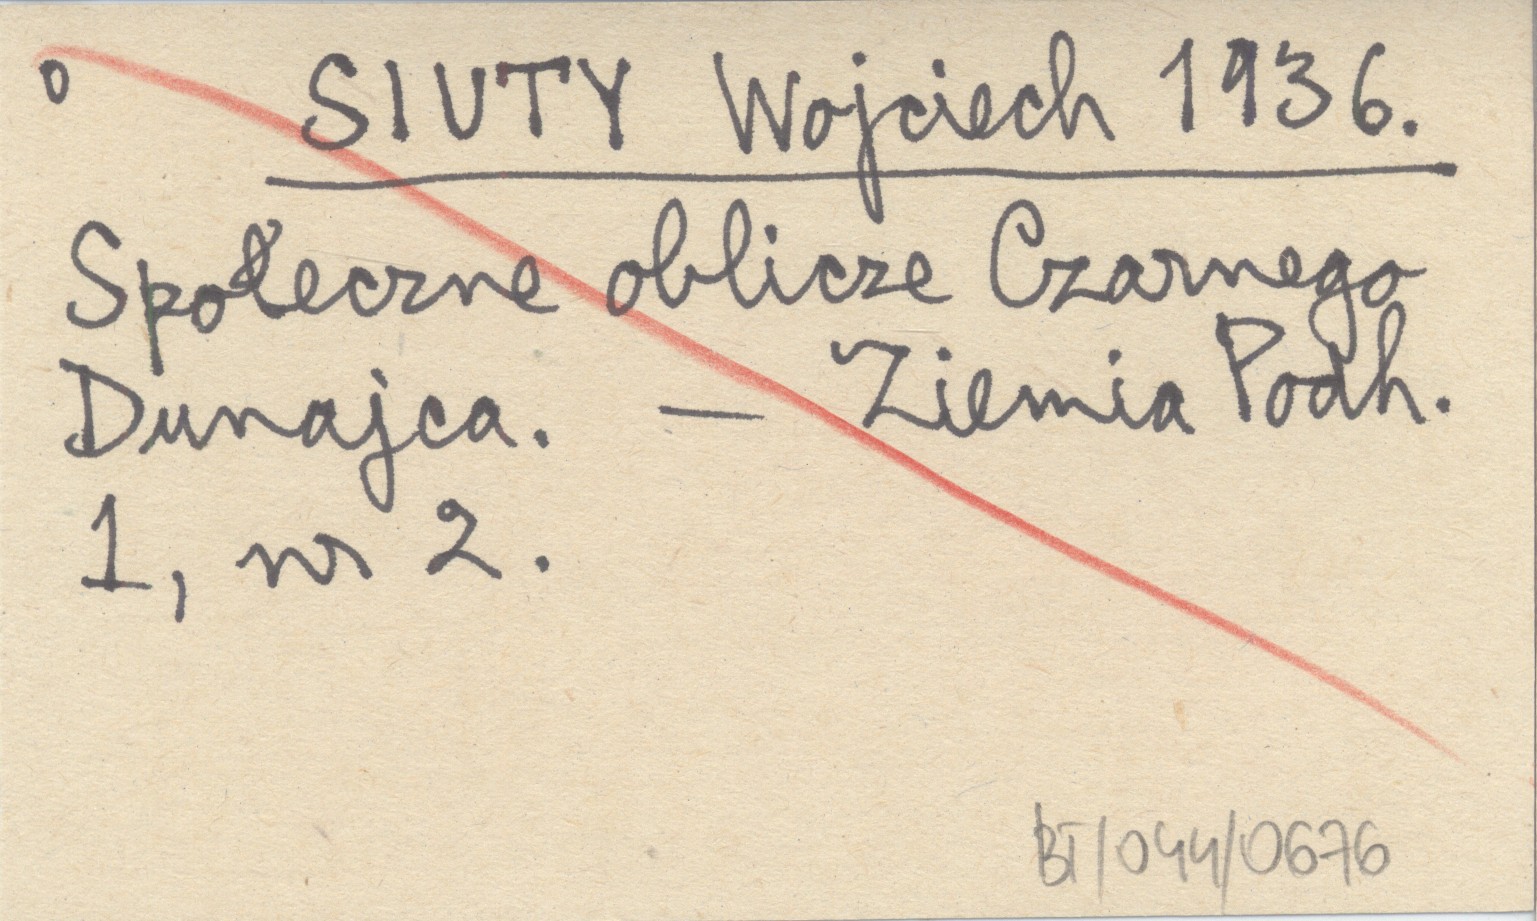 o SIUTY Wojciech 1936.
Społeczne oblicze Czarnego
Dunajca. — Ziemia Podh.
1, nr 2.
BT/044/0676